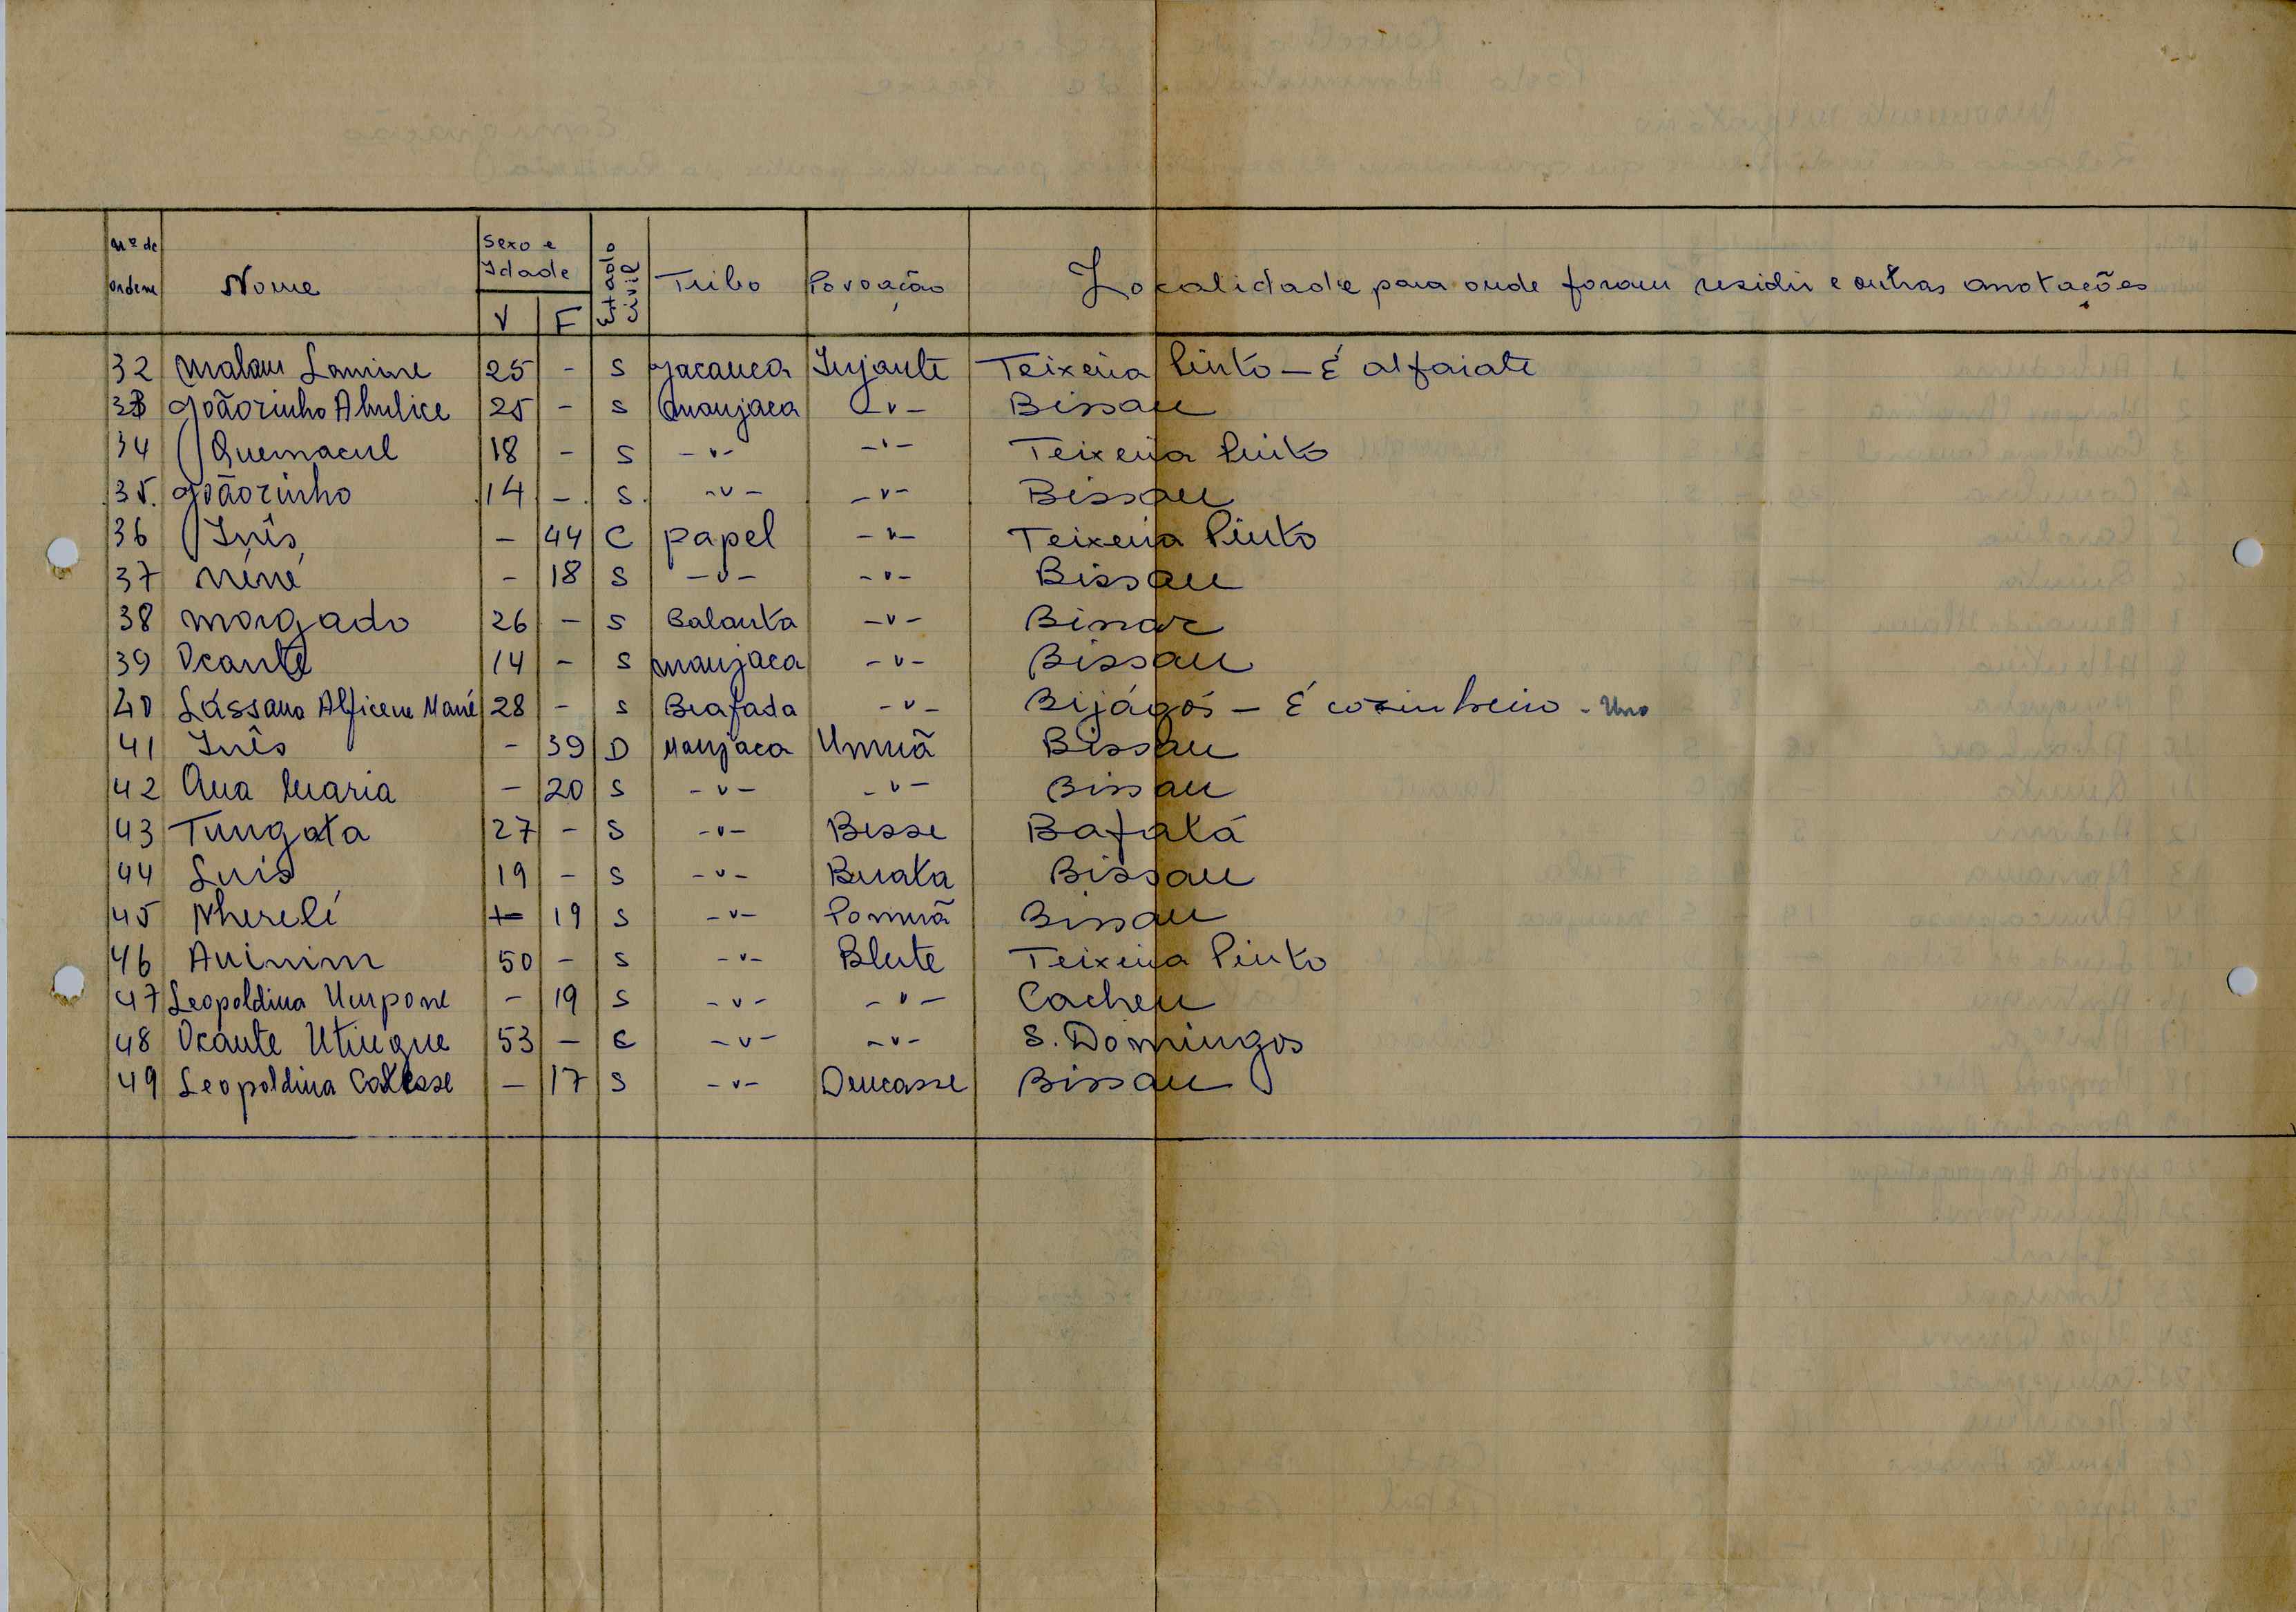 Nº de ordem | Nome | Sexo e Idade V F | Estado civil | Tribo | Povoação | Localidade para onde foram residir e outras anotações
32 Malam Lamine 25 - S Jacanca Injante Teixeira Pinto - É alfaiate
33 Joãozinho Ahulice 25 - S Manjaca -v- Bissau
34 Quemacul 18 - S -v- -v- Teixeira Pinto
35. Joãozinho 14 - S. -v- -v- Bissau
36 Inês - 44 C papel -v- Teixeira Pinto
37 Néné - 18 S -v- -v- Bissau
38 Morgado 26 - S Balanta -v- Binar
39 Ocante 14 - S Manjaca -v- Bissau
40 Lássana Alficene Mané 28 - S Beafada -v- Bijágós - É cozinheiro - Uno
41 Inês - 39 D Manjaca Umuã Bissau
42 Ana Maria - 20 S -v- -v- Bissau
43 Tungata 27 - S -v- Besse Bafatá
44 Luis 19 - S -v- Burata Bissau
45 Nherelí - 19 S -v- Pomuã Bissau
46 Aninim 50 - S -v- Blute Teixeira Pinto
47 Leopoldina Umpone - 19 S -v- -v- Cacheu
48 Ocante Utinque 53 - C -v- -v- S. Domingos
49 Leopoldina - 17 S -v- Bissau